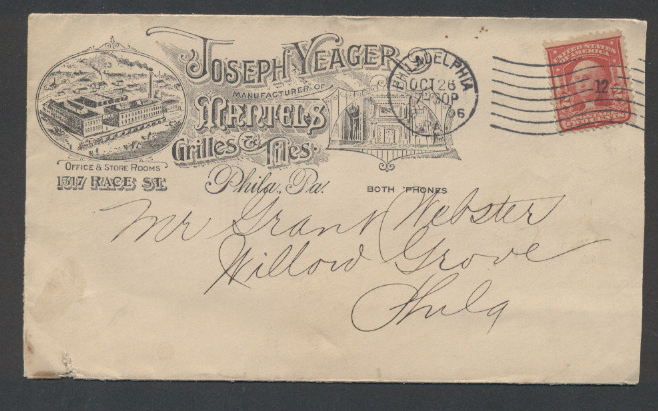 JOSEPH YEAGER
MANUFACTURER OF
MANTELS
Grilles & Tiles.
Phila., Pa.
BOTH 'PHONES
OFFICE & STORE ROOMS
1317 RACE ST.
PHILADELPHIA
OCT 26
7 30P
06
PA
UNITED STATES
OF AMERICA
12
Mr Grant Webster
Willow Grove
Phila